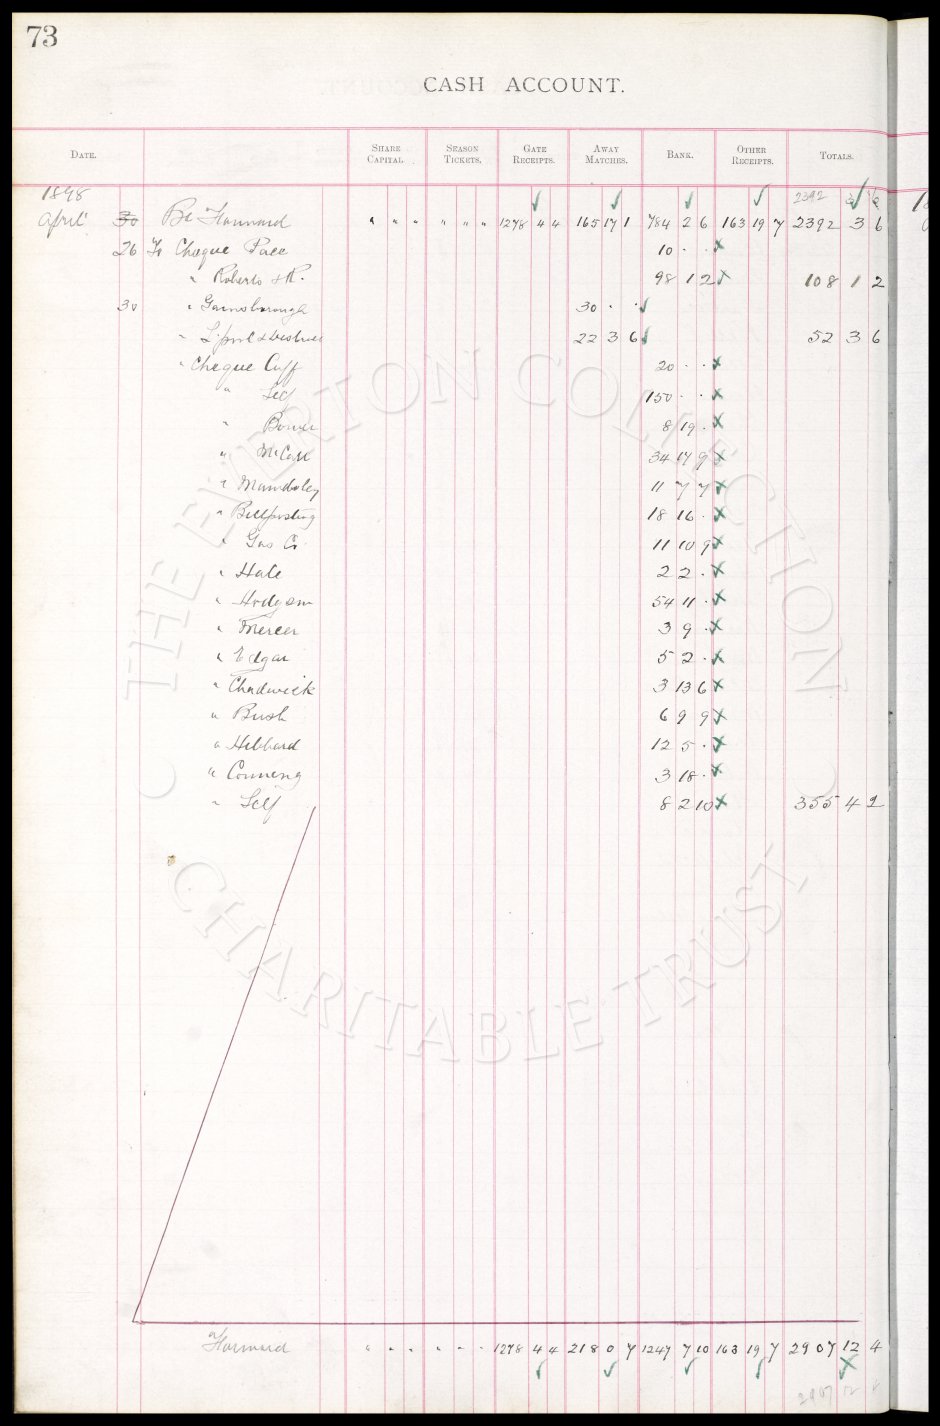 73
CASH ACCOUNT.
DATE. SHARE CAPITAL. SEASON TICKETS. GATE RECEIPTS. AWAY MATCHES. BANK. OTHER RECEIPTS. TOTALS.
1898 2392
April 30 Bt Forward " " " " " " 1278 4 4 165 17 1 784 2 6 163 19 7 2392 3 6
26 To Cheque Pace 10 . .
" Roberts & R. 98 1 2 108 1 2
30 " Gainsborough 30 . .
" L'pool & District 22 3 6 52 3 6
" Cheque Cuff 20 . .
" Self 150 . .
" 8 19 .
" McCall 34 17 9
" Mawdsley 11 7 7
" Billposting 18 16 .
" Gas Co. 11 10 9
" Hale 2 2 .
" Hodgson 54 11 .
" Mercer 3 9 .
" Edgar 5 2 .
" Chadwick 3 13 6
" Bush 6 9 9
" Hibbard 12 5 .
" 3 18 .
" Self 8 2 10 355 4 2
THE EVERTON COLLECTION
CHARITABLE TRUST
Forward " " " " " " 1278 4 4 218 0 7 1247 7 10 163 19 7 2907 12 4
2907 12 4